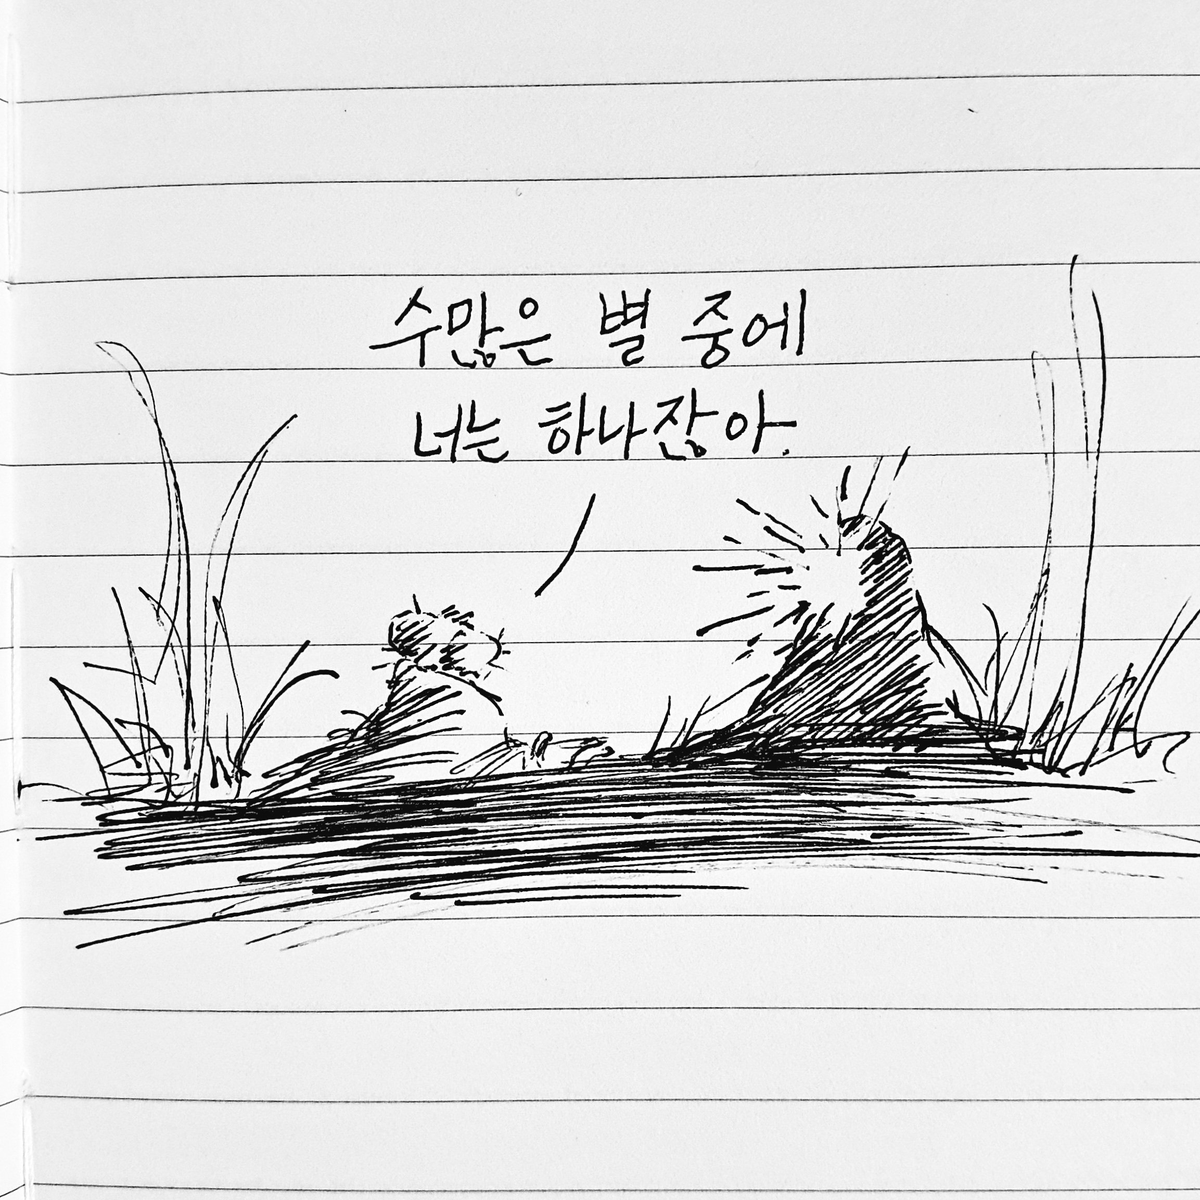 수많은 별 중에
너는 하나잖아.